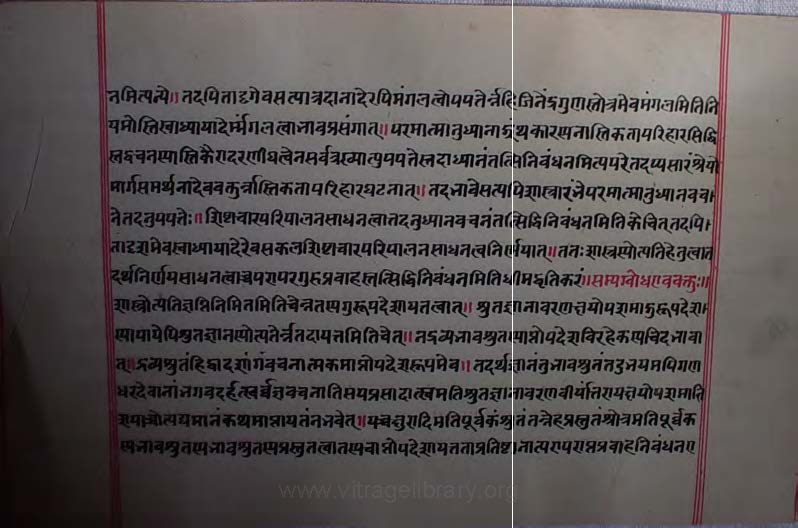 नमित्यन्ये॥ तदपि तादृगेव सत्पात्रदानादेरपि मंगलत्वोपपत्तेर्न्नहि जिनेंद्रगुणस्तोत्रमेव मंगलमिति नि
यमोस्ति स्वाध्यायादेर्मंगलत्वाभावप्रसंगात्॥ परमात्मानुध्यानाद्ग्रंथकारस्य नास्तिकतापरिहारसिद्धि
स्तद्वचनस्यास्तिकैरादरणीयत्वेन सर्वत्र ख्यात्युपपत्तेस्तदाध्यानं तत्सिद्धिनिबंधनमित्यपरे तदप्यसारं श्रेयो
मार्गसमर्थनादेव वक्तुर्न्नास्तिकतापरिहारघटनात्॥ तदभावे सत्यपि शास्त्रारंभे परमात्मानुध्यानवच
ने तदनुपपत्तेः॥ शिष्टाचारपरिपालनसाधनत्वात्तदनुध्यानवचनं तत्सिद्धिनिबंधनमिति केचित् तदपि
तादृशमेव स्वाध्यायादेरेव सकलशिष्टाचारपरिपालनसाधनत्वनिर्णयात्॥ ततः शास्त्रस्योत्पत्तिहेतुत्वात्त
दर्थनिर्णयसाधनत्वाच्च परापरगुरुप्रवाहस्तत्सिद्धिनिबंधनमिति धीमद्धृतिकरं॥ सम्यग्बोध एव वक्तुः॥
शास्त्रोत्पत्तिज्ञप्तिनिमित्तमिति चेन्न तस्य गुरूपदेशायत्तत्वात्॥ श्रुतज्ञानावरणक्षयोपशमाद्गुरूपदेश
स्यापायेपि श्रुतज्ञानस्योत्पत्तेर्न्न तदायत्तमिति चेत्॥ न द्रव्यभावश्रुतस्याप्तोपदेशविरहे कस्यचिदभावा
त्॥ द्रव्यश्रुतं हि द्वादशांगं वचनात्मकमाप्तोपदेशरूपमेव॥ तदर्थज्ञानं तु भावश्रुतं तदुभयमपि गण
धरदेवानां भगवदर्हत्सर्वज्ञवचनातिसयप्रसादात्स्वमतिश्रुतज्ञानावरणवीर्यांतरायक्षयोपशमाति
शयाच्चोत्पद्यमानं कथमाप्तायत्तं न भवेत्॥ यच्चक्षुरादिमतिपूर्वकं श्रुतं तन्नेह प्रस्तुतं श्रोत्रमतिपूर्वक
स्य भावश्रुतस्य प्रस्तुतत्वात्तस्य चाप्तोपदेशायत्तताप्रतिष्ठानात्परापराप्तप्रवाहनिबंधन ए
www.vitragelibrary.org